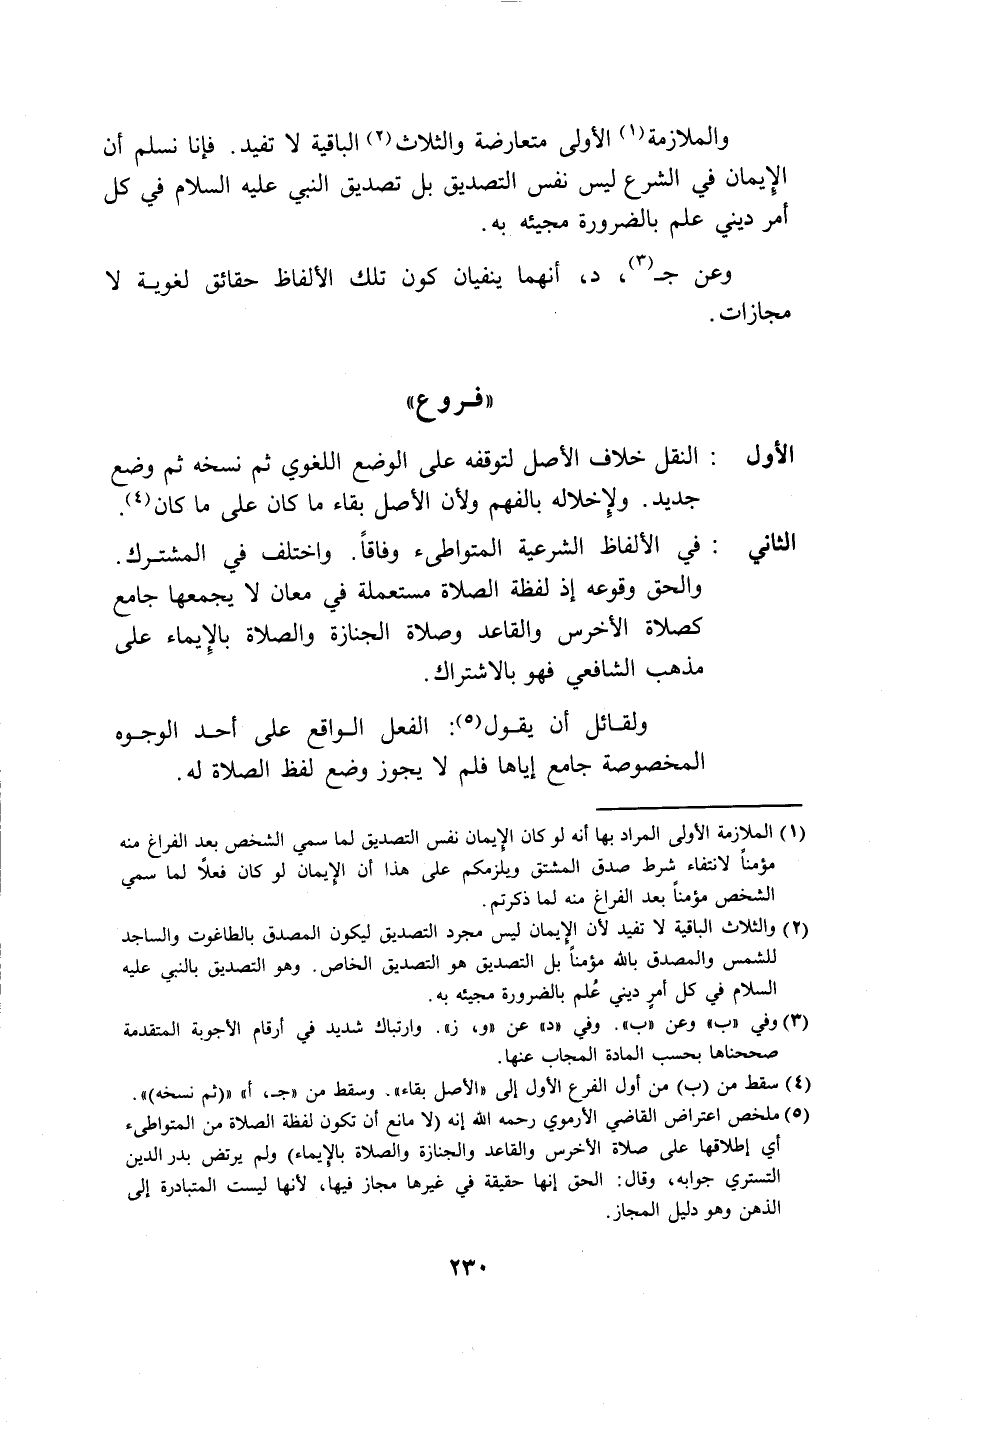 والملازمة(١) الأولى متعارضة والثلاث(٢) الباقية لا تفيد. فإنا نسلم أن
الإيمان في الشرع ليس نفس التصديق بل تصديق النبي عليه السلام في كل
أمر ديني علم بالضرورة مجيئه به.
وعن جـ(٣)، د، أنهما ينفيان كون تلك الألفاظ حقائق لغويـة لا
مجازات.
«فـروع»
الأول : النقل خلاف الأصل لتوقفه على الوضع اللغوي ثم نسخه ثم وضع
جديد. ولإخلاله بالفهم ولأن الأصل بقاء ما كان على ما كان(٤).
الثاني : في الألفاظ الشرعية المتواطىء وفاقاً. واختلف في المشتـرك.
والحق وقوعه إذ لفظة الصلاة مستعملة في معان لا يجمعها جامع
كصلاة الأخرس والقاعد وصلاة الجنازة والصلاة بالإيماء على
مذهب الشافعي فهو بالاشتراك.
ولقـائل أن يقـول(٥): الفعل الـواقع على أحـد الوجـوه
المخصوصة جامع إياها فلم لا يجوز وضع لفظ الصلاة له.
(١) الملازمة الأولى المراد بها أنه لو كان الإيمان نفس التصديق لما سمي الشخص بعد الفراغ منه
مؤمناً لانتفاء شرط صدق المشتق ويلزمكم على هذا أن الإيمان لو كان فعلاً لما سمي
الشخص مؤمناً بعد الفراغ منه لما ذكرتم.
(٢) والثلاث الباقية لا تفيد لأن الإيمان ليس مجرد التصديق ليكون المصدق بالطاغوت والساجد
للشمس والمصدق بالله مؤمناً بل التصديق هو التصديق الخاص. وهو التصديق بالنبي عليه
السلام في كل أمرٍ ديني عُلم بالضرورة مجيئه به.
(٣) وفي «ب» وعن «ب». وفي «د» عن «و، ز». وارتباك شديد في أرقام الأجوبة المتقدمة
صححناها بحسب المادة المجاب عنها.
(٤) سقط من (ب) من أول الفرع الأول إلى «الأصل بقاء». وسقط من «جـ، أ» «(ثم نسخه)».
(٥) ملخص اعتراض القاضي الأرموي رحمه الله إنه (لا مانع أن تكون لفظة الصلاة من المتواطىء
أي إطلاقها على صلاة الأخرس والقاعد والجنازة والصلاة بالإيماء) ولم يرتض بدر الدين
التستري جوابه، وقال: الحق إنها حقيقة في غيرها مجاز فيها، لأنها ليست المتبادرة إلى
الذهن وهو دليل المجاز.
٢٣٠